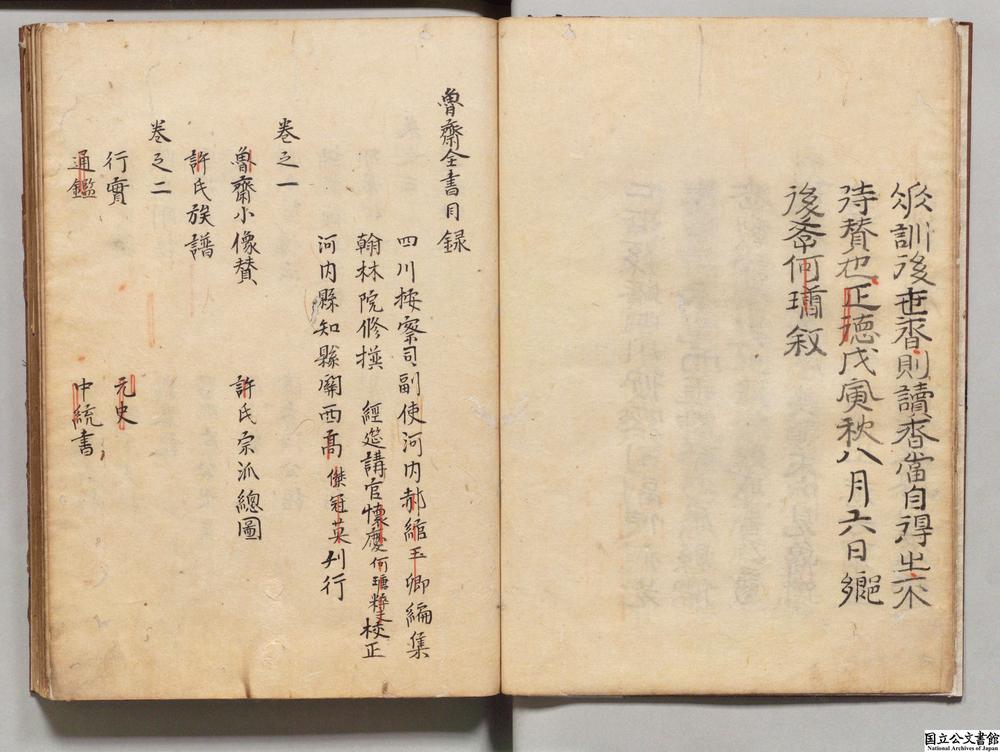 訓後世者則讀者當自得之不
待贊也正德戊寅秋八月六日鄉
後學何瑭敘
魯齋全書目録
四川按察司副使河内郝綰玉卿編集
翰林院修撰 經筵講官懷慶何瑭粹夫校正
河内縣知縣關西高傑冠英刋行
卷之一
魯齋小像賛
許氏宗派總圖
許氏族譜
卷之二
行實
元史
通鑑
中統書
国立公文書館
National Archives of Japan